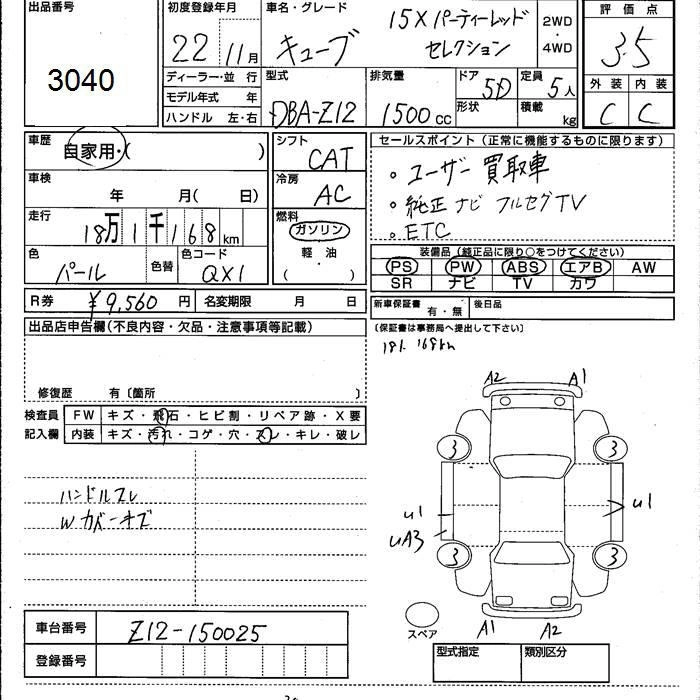 出品番号
3040
初度登録年月
22 11月
車名・グレード
キューブ
15X パーティーレッド
セレクション
2WD
・
4WD
評価点
3.5
外装 内装
C C
ディーラー・並行
モデル年式 年
ハンドル 左・右
型式
DBA-Z12
排気量
1500cc
ドア
5D
形状
定員
5人
積載
kg
車歴
自家用・( )
車検
年 月( 日)
走行
18万1千168km
色
パール
色替
色コード
QX1
シフト
CAT
冷房
AC
燃料
ガソリン
軽・油
( )
セールスポイント(正常に機能するものに限ります)
。ユーザー買取車
。純正ナビ フルセグTV
。ETC
装備品(純正品に限り○をつけてください)
PS PW ABS エアB AW
SR ナビ TV カワ
R券 ¥9,560円
名変期限 月 日
新車保証書
有・無
後日品
出品店申告欄(不良内容・欠品・注意事項等記載)
(保証書は事務局へ提出して下さい)
181.168km
修復歴 有〔箇所 〕
検査員
記入欄
FW キズ・飛石・ヒビ割・リペア跡・X要
内装 キズ・汚れ・コゲ・穴・スレ・キレ・破レ
ハンドルスレ
Wカバーキズ
A2 A1
3 3
U1 U1
UA3
3 3
スペア
A1 A2
車台番号 Z12-150025
登録番号
型式指定 類別区分